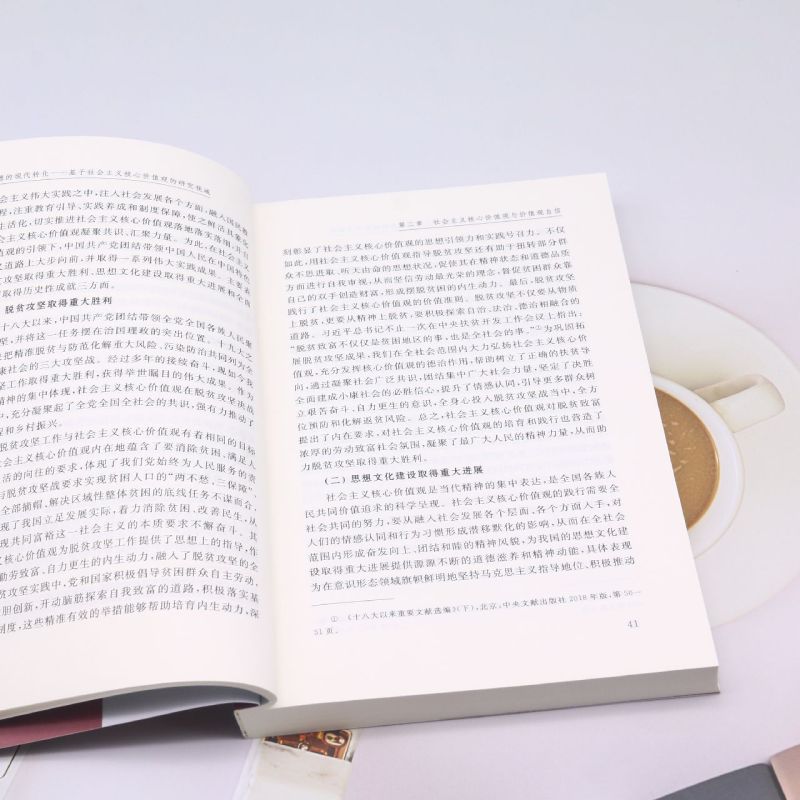 想的现代转化——基于社会主义核心价值观的研究视域
会主义伟大实践之中,注入社会发展各个方面,融入国民教
程,注重教育引导、实践养成和制度保障,使之鲜活具象化
生活化,切实推进社会主义核心价值观落地落实落细,并在
观的引领下,中国共产党团结带领中国人民在中国特色
义道路上大步向前,并取得一系列伟大实践成果。主要表
攻坚取得重大胜利、思想文化建设取得重大进展和全面
取得历史性成就三方面。
脱贫攻坚取得重大胜利
十八大以来,中国共产党团结带领全党全国各族人民聚
坚,并将这一任务摆在治国理政的突出位置。十九大之
把精准脱贫与防范化解重大风险、污染防治共同列为全
康社会的三大攻坚战。经过多年的接续奋斗,现如今我
坚工作取得重大胜利,获得举世瞩目的伟大成果。作为
精神的集中体现,社会主义核心价值观在脱贫攻坚战
中,充分凝聚起了全党全国全社会的共识,强有力推动了
程和乡村振兴。
脱贫攻坚工作与社会主义核心价值观有着相同的目标
义核心价值观内在地蕴含了要消除贫困、满足人
活的向往的要求,体现了我们党始终为人民服务的责
与脱贫攻坚战要求实现贫困人口的“两不愁、三保障”、
全部摘帽、解决区域性整体贫困的底线任务不谋而合,
现了我国立足发展实际,着力消除贫困、改善民生,从
现共同富裕这一社会主义的本质要求不懈奋斗。其
义核心价值观为脱贫攻坚工作提供了思想上的指导,作
勤劳致富、自力更生的内生动力,融入了脱贫攻坚的全
贫攻坚实践中,党和国家积极倡导贫困群众自主劳动,
胆创新,开动脑筋探索自我致富的道路,积极落实基
制度,这些精准有效的举措能够帮助培育内生动力,深
第二章 社会主义核心价值观与价值观自信
刻彰显了社会主义核心价值观的思想引领力和实践号召力。不仅
如此,用社会主义核心价值观指导脱贫攻坚还有助于扭转部分群
众不思进取、听天由命的思想状况,促使其在精神状态和道德品质
方面进行自我审视,从而坚信劳动最光荣的理念,督促贫困群众靠
自己的双手创造财富,形成摆脱贫困的内生动力。最后,脱贫攻坚
践行了社会主义核心价值观的价值准则。脱贫攻坚不仅要从物质
上脱贫,更要从精神上脱贫,要积极探索自治、法治、德治相融合的
道路。习近平总书记不止一次在中央扶贫开发工作会议上指出:
“脱贫致富不仅仅是贫困地区的事,也是全社会的事。”①为巩固拓
展脱贫攻坚成果,我们在全社会范围内大力弘扬社会主义核心价
值观,充分发挥核心价值观的德治作用,帮助树立了正确的扶贫导
向,通过凝聚社会广泛共识,团结集中广大社会力量,坚定了决胜
全面建成小康社会的必胜信心,提升了情感认同,引导更多群众树
立艰苦奋斗、自力更生的意识,全身心投入脱贫攻坚战当中,全方
位预防和化解返贫风险。总之,社会主义核心价值观对脱贫致富
提出了内在要求,对社会主义核心价值观的培育和践行也营造了
浓厚的劳动致富社会氛围,凝聚了最广大人民的精神力量,从而助
力脱贫攻坚取得重大胜利。
(二)思想文化建设取得重大进展
社会主义核心价值观是当代精神的集中表达,是全国各族人
民共同价值追求的科学呈现。社会主义核心价值观的践行需要全
社会共同的努力,要从融入社会发展各个层面、各个方面入手,对
人们的情感认同和行为习惯形成潜移默化的影响,从而在全社会
范围内形成奋发向上、团结和睦的精神风貌,为我国的思想文化建
设取得重大进展提供源源不断的道德滋养和精神动能,具体表现
为在意识形态领域旗帜鲜明地坚持马克思主义指导地位,积极推动
① 《十八大以来重要文献选编》(下),北京:中央文献出版社2018年版,第50—
51页。
41